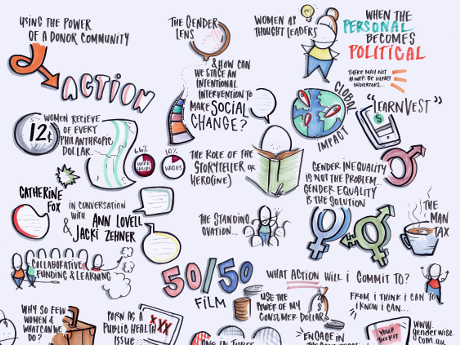 USING THE POWER
OF A DONOR COMMUNITY
ACTION
12¢
WOMEN RECIEVE
OF EVERY
PHILANTHROPIC
DOLLAR...
66%
10%
WAGES
CATHERINE
FOX
IN CONVERSATION
WITH
ANN LOVELL
& JACKI ZEHNER
COLLABORATIVE
FUNDING & LEARNING
WHY SO FEW
WOMEN &
WHAT CAN WE
DO?
THE GENDER
LENS
& HOW CAN
WE STAGE AN
INTENTIONAL
INTERVENTION TO
MAKE SOCIAL
CHANGE?
THE ROLE OF THE
STORYTELLER OR
HERO(INE)
THE STANDING
OVATION...
50/50
FILM
PORN AS A
PUBLIC HEALTH
ISSUE
XXX
USE THE
POWER OF MY
CONSUMER DOLLAR
WOMEN AS
THOUGHT LEADERS
WHEN THE
PERSONAL
BECOMES
POLITICAL
THERE MAY NOT
ALWAYS BE IMPACT
INDICATORS...
GLOBAL
IMPACT
"LEARNVEST"
$
GENDER INEQUALITY
IS NOT THE PROBLEM...
GENDER EQUALITY
IS THE SOLUTION
THE
MAN
TAX
WHAT ACTION WILL I COMMIT TO?
FROM I THINK I CAN TO
I KNOW I CAN...
ENGAGE IN
WWW.
GENDERWISE.
COM.AU